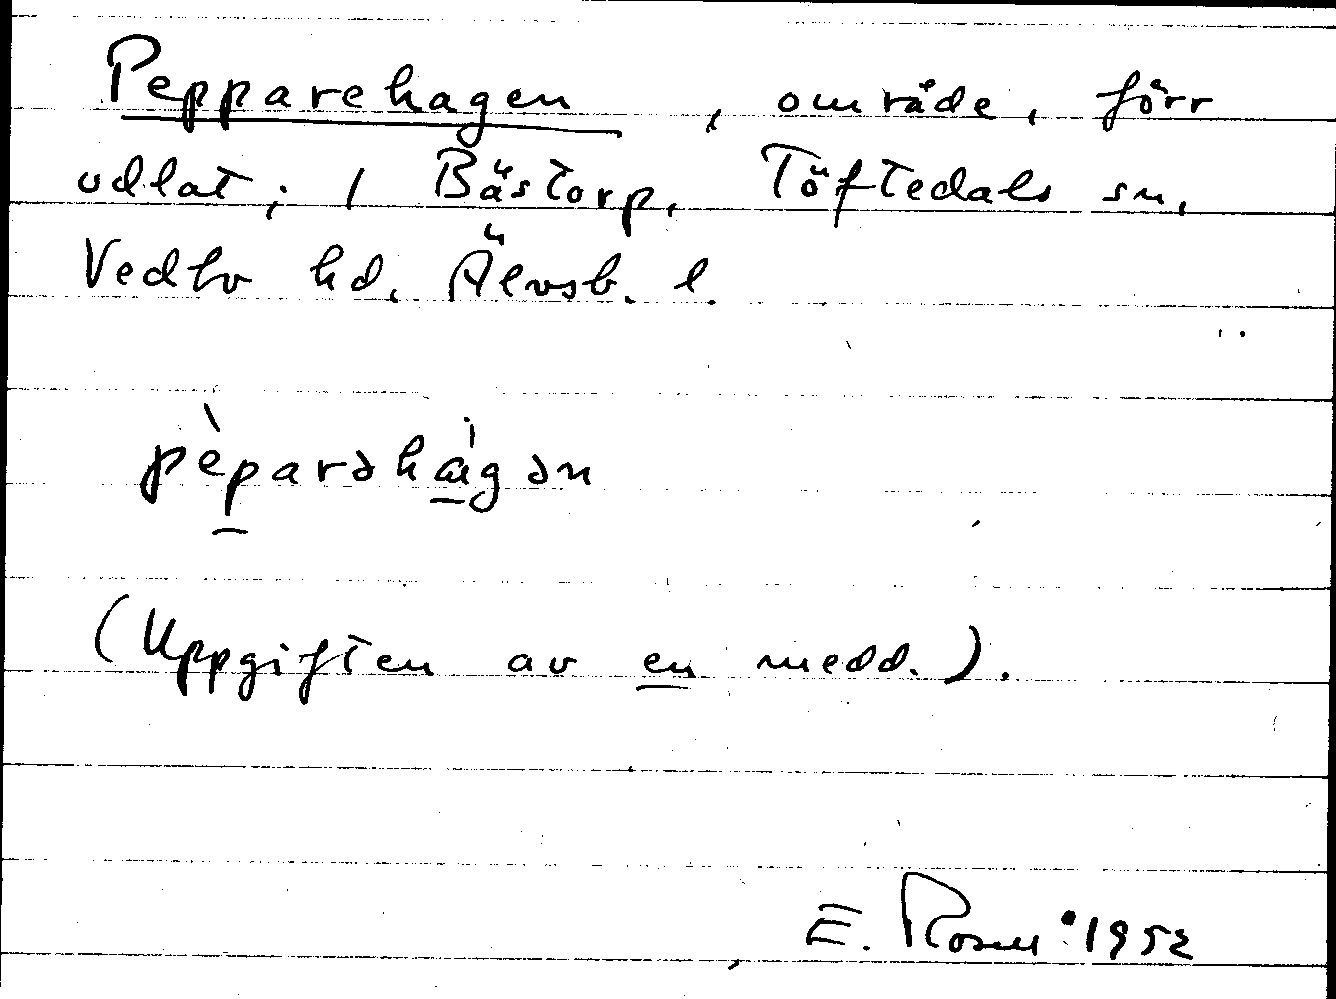 Pepparehagen, område, förr
odlat; / Bästorp, Töftedals sn,
Vedbo hd. Älvsb. l.
pèparəhágən
(Uppgiften av en medd.).
E. Rosen 1952